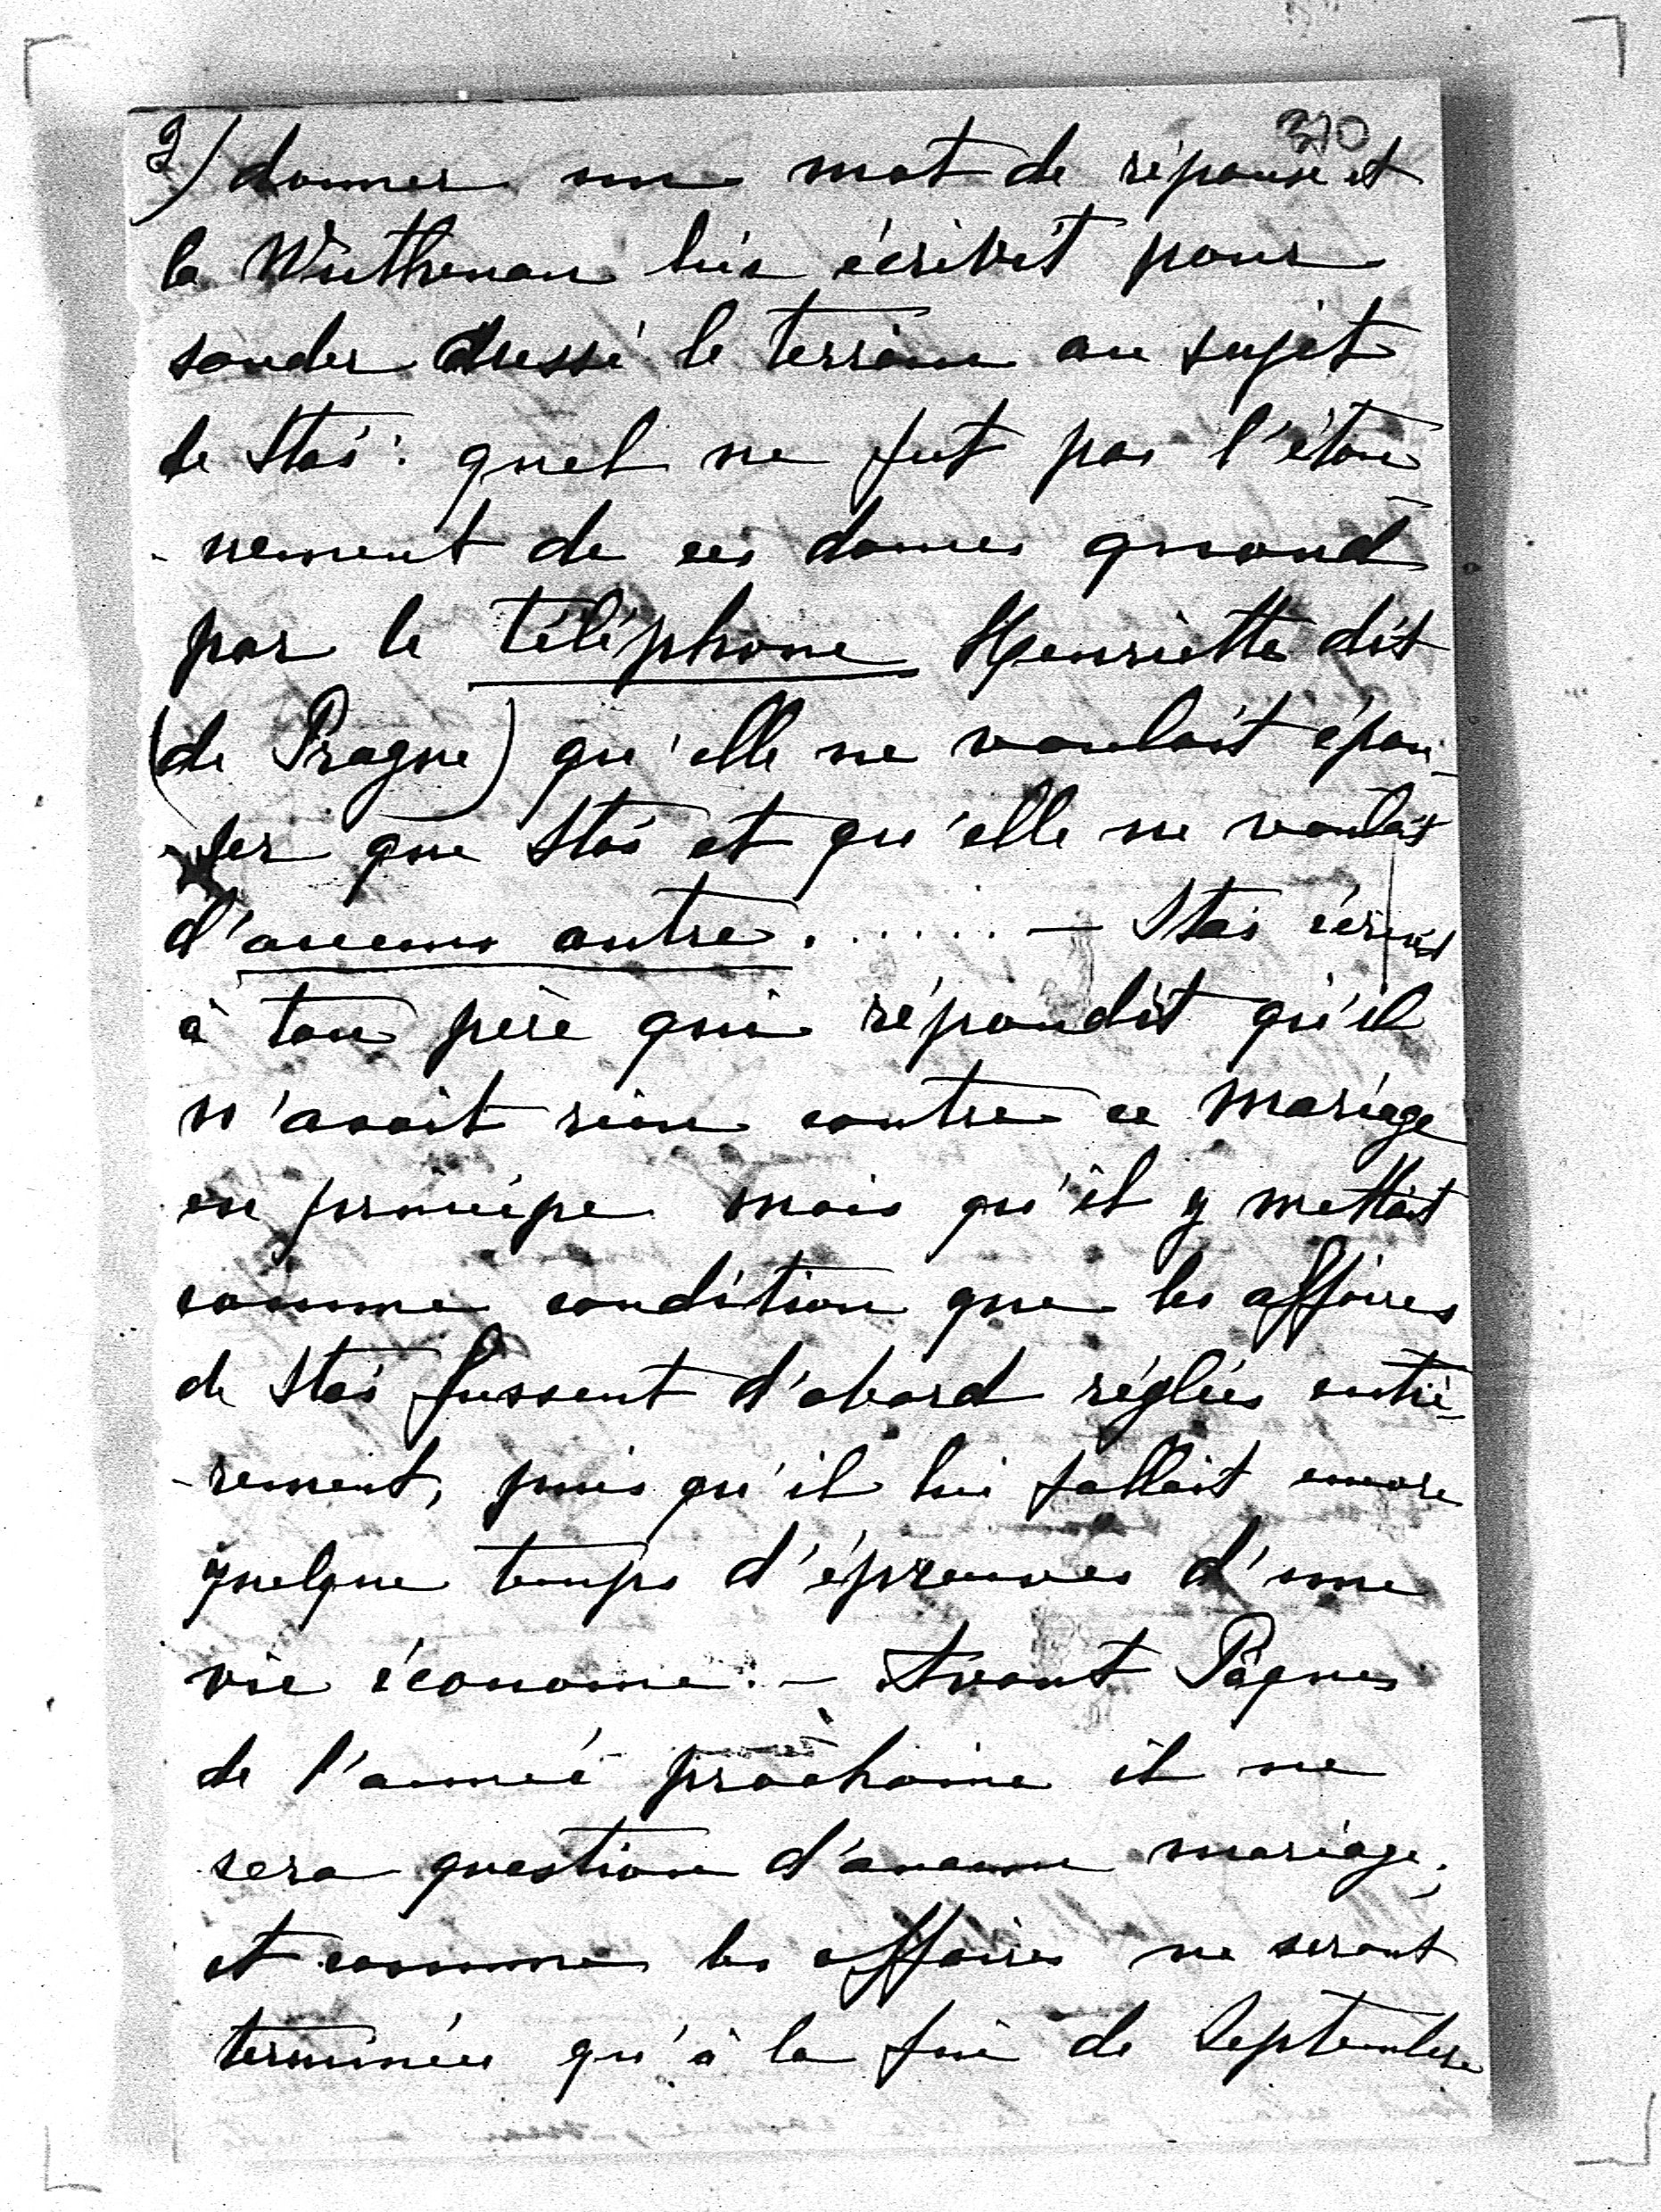 370
2) donner un mot de réponse et
la Wuthenau lui écrivit pour
sonder aussi le terrain au sujet
de Staś: quel ne fut pas l'éton
-nement de ces dames quand
par le téléphone Henriette dit
(de Prague) qu'elle ne voulait épou-
-ser que Staś et qu'elle ne voulait
d'aucun autre. . . . . . . — Staś écrivit
à ton père qui répondit qu'il
n'avait rien contre ce mariage
en principe mais qu'il y mettait
comme condition que les affaires
de Staś fussent d'abord réglées entiè-
-rement, puis qu'il lui fallait encore
quelque temps d'épreuves d'une
vie économe. — Avant Pâques
de l'année prochaine il ne
sera question d'aucun mariage;
et comme les affaires ne seront
terminées qu'à la fin de Septembre